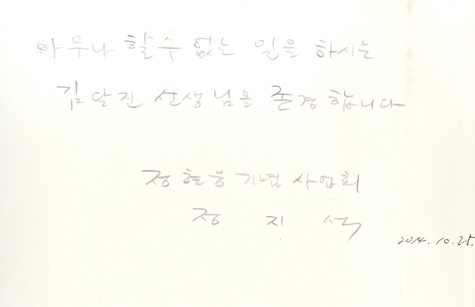 아무나 할 수 없는 일을 하시는
김달진 선생님을 존경합니다
정현웅기념사업회
정 지 석
2014. 10. 25.